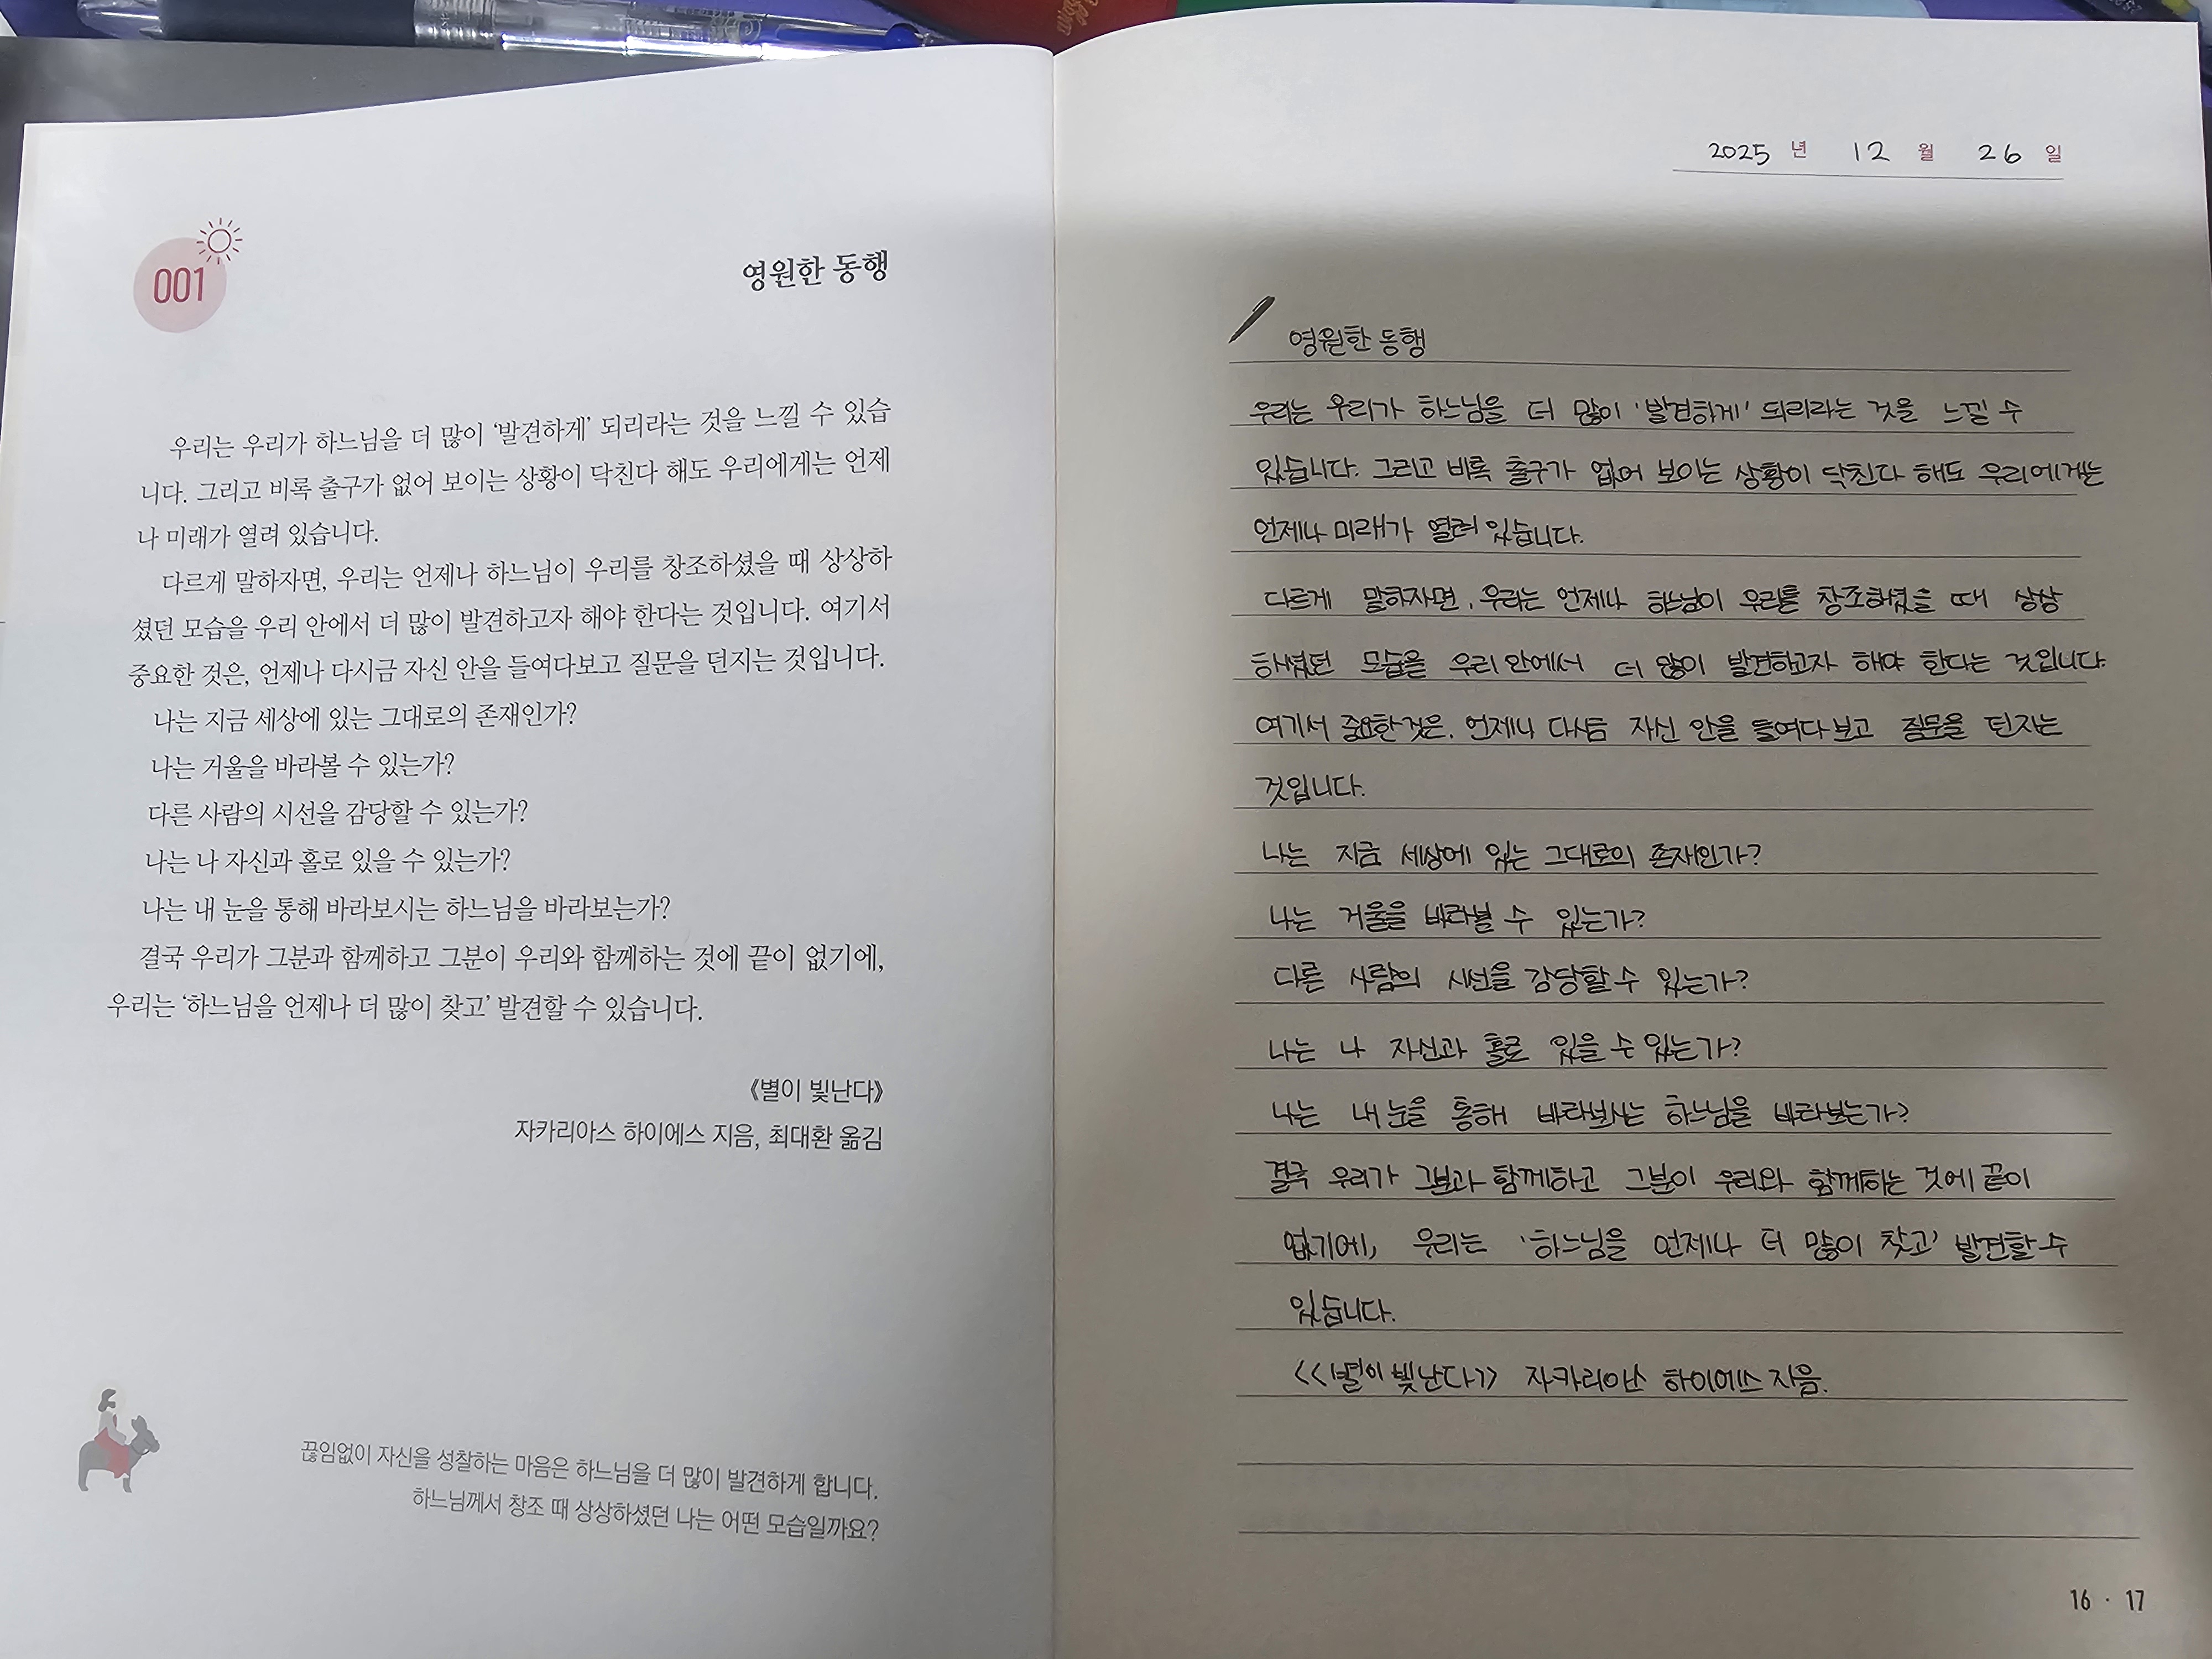 001
영원한 동행
우리는 우리가 하느님을 더 많이 ‘발견하게’ 되리라는 것을 느낄 수 있습
니다. 그리고 비록 출구가 없어 보이는 상황이 닥친다 해도 우리에게는 언제
나 미래가 열려 있습니다.
다르게 말하자면, 우리는 언제나 하느님이 우리를 창조하셨을 때 상상하
셨던 모습을 우리 안에서 더 많이 발견하고자 해야 한다는 것입니다. 여기서
중요한 것은, 언제나 다시금 자신 안을 들여다보고 질문을 던지는 것입니다.
나는 지금 세상에 있는 그대로의 존재인가?
나는 거울을 바라볼 수 있는가?
다른 사람의 시선을 감당할 수 있는가?
나는 나 자신과 홀로 있을 수 있는가?
나는 내 눈을 통해 바라보시는 하느님을 바라보는가?
결국 우리가 그분과 함께하고 그분이 우리와 함께하는 것에 끝이 없기에,
우리는 ‘하느님을 언제나 더 많이 찾고’ 발견할 수 있습니다.
《별이 빛난다》
자카리아스 하이에스 지음, 최대환 옮김
끊임없이 자신을 성찰하는 마음은 하느님을 더 많이 발견하게 합니다.
하느님께서 창조 때 상상하셨던 나는 어떤 모습일까요?
2025 년 12 월 26 일
영원한 동행
우리는 우리가 하느님을 더 많이 ‘발견하게’ 되리라는 것을 느낄 수
있습니다. 그리고 비록 출구가 없어 보이는 상황이 닥친다 해도 우리에게는
언제나 미래가 열려 있습니다.
다르게 말하자면, 우리는 언제나 하느님이 우리를 창조하셨을 때 상상
하셨던 모습을 우리 안에서 더 많이 발견하고자 해야 한다는 것입니다.
여기서 중요한 것은, 언제나 다시금 자신 안을 들여다보고 질문을 던지는
것입니다.
나는 지금 세상에 있는 그대로의 존재인가?
나는 거울을 바라볼 수 있는가?
다른 사람의 시선을 감당할 수 있는가?
나는 나 자신과 홀로 있을 수 있는가?
나는 내 눈을 통해 바라보시는 하느님을 바라보는가?
결국 우리가 그분과 함께하고 그분이 우리와 함께하는 것에 끝이
없기에, 우리는 ‘하느님을 언제나 더 많이 찾고’ 발견할 수
있습니다.
<<별이 빛난다>> 자카리아스 하이에스 지음.
16 · 17